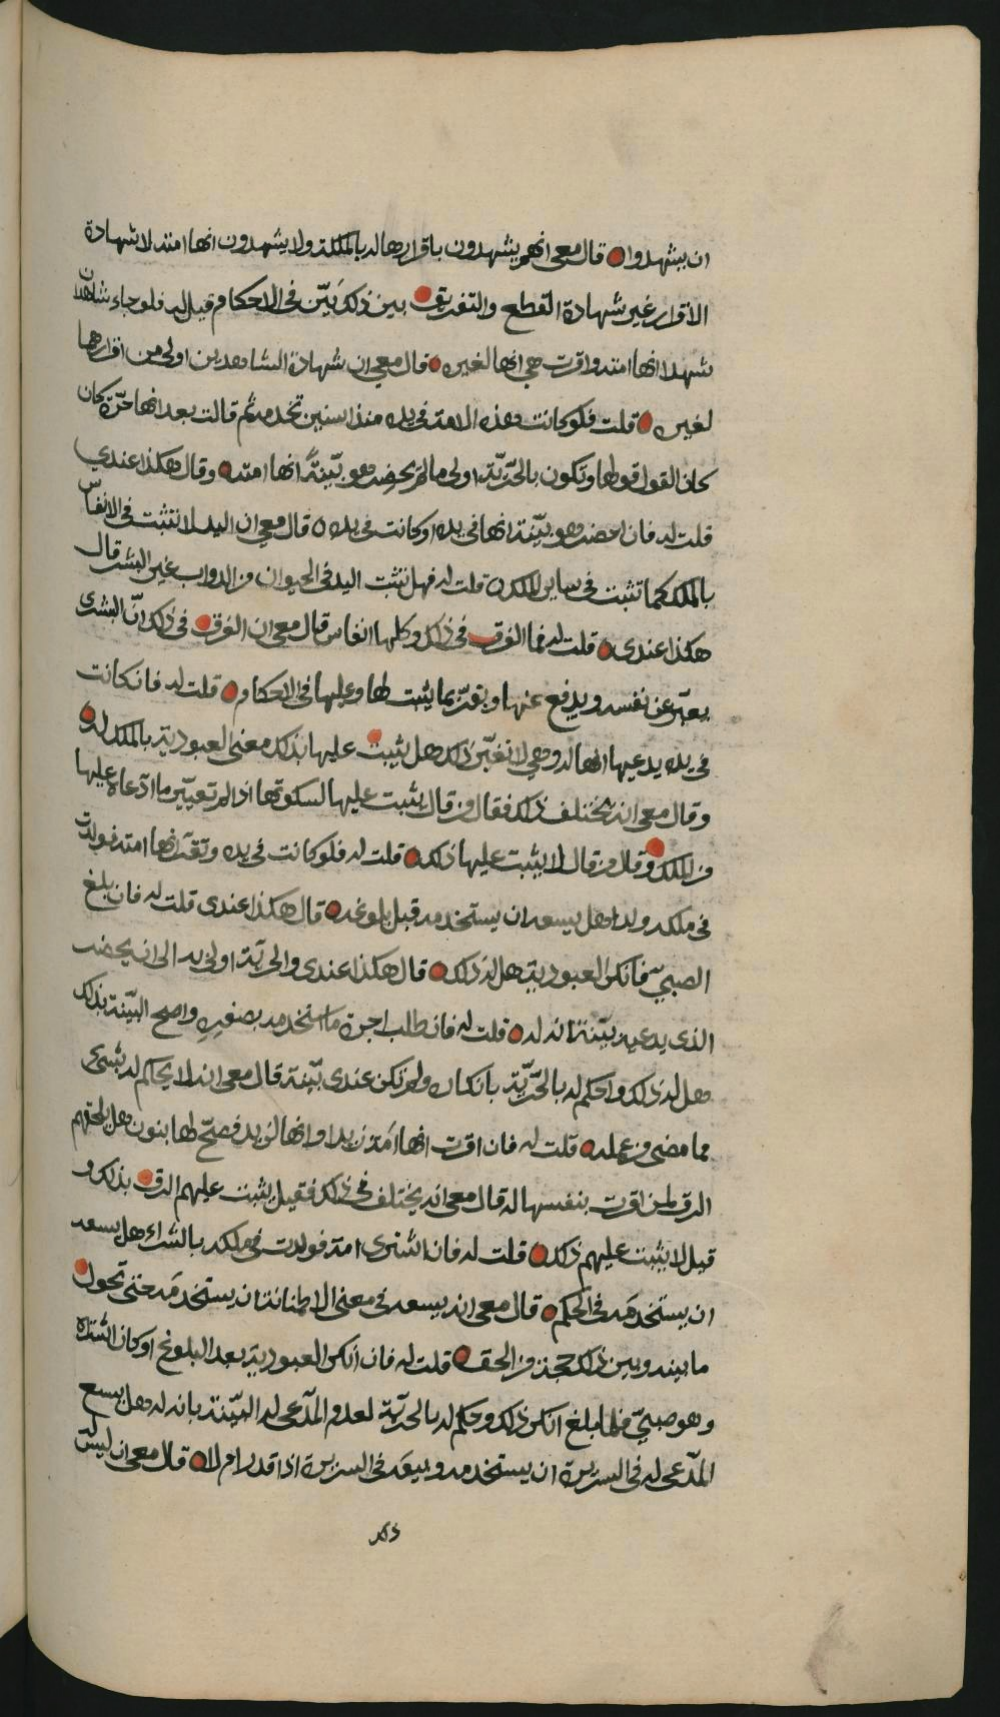 ان يشهدوا قال معي انهم يشهدون باقرارها له بالملكة ولا يشهدون انها امته لا شهادة
الاقرار غير شهادة القطع والتفريق بين ذلك بَيّن في الاحكام قيل له فلو جاء شاهدان
شهدا انها امته واقرت هي انها لغيره قال معي ان شهادة الشاهدين اولى من اقرارها
لغيره قلت فلو كانت هذه الامة في يده منذ اسنين تخدمه ثم قالت بعد انها حرّة كان
كان القول قولها وتكون بالحرّيّة اولى ما لم يحضر هو بيّنةً انها امته وقال هكذا عندي
قلت له فان احضر هو بيّنة انها في يده او كانت في يده قال معي ان اليد لا تثبت في الانفاس
بالملك كما تثبت في ساير الملك قلت له فهل تثبت اليد في الحيوان من الدواب غير البشر قال
هكذا عندي قلت له فما الفرق في ذلك وكلها انفاس قال معي ان الفرق في ذلك انّ البشرى
يعبّر عن نفسه ويدفع عنها ويقرّ بما يثبت لها وعليها في الاحكام قلت له فان كانت
في يده يدعيها انها له وهي لا تغيّر ذلك هل يثبت عليها بذلك معنى العبودية بالملك له
وقال معي انه يختلف في ذلك فقال من قال يثبت عليها لسكوتها اذا لم تعيّر ما ادّعاه عليها
من الملك وقال من قال لا يثبت عليها ذلك قلت له فلو كانت في يده وتقرّ انها امته فولدت
في ملكه ولدا هل يسعه ان يستخدمه قبل بلوغه قال هكذا عندي قلت له فان بلغ
الصبيّ فانكر العبودية هل له ذلك قال هكذا عندي والحريّة اولى به الى ان يحضر
الذي يدعيه بيّنة انه له قلت له فان طلب اجرة ما استخدمه بصغره واصح البيّنة بذلك
هل له ذلك واحكم له بالحرّيّة بانكاره ولم تكن عندي بيّنة قال معي انه لا يحاكم له بشيء
مما مضى من عمله قلت له فان اقرت انها امة زيد او انها لزيد فصحّ لها بنون هل يلحقهم
الرق لمن اقرت بنفسها له قال معي انه يختلف في ذلك فقيل يثبت عليهم الرق بذلك و
قيل لا يثبت عليهم ذلك قلت له فان اشترى امة فولدت في ملكه بالشراء هل يسعه
ان يستخدمَه في الحكم قال معي انه يسعه في معنى الاطمئنانة ان يستخدمَه حتى تحول
ما بينه وبين ذلك حجة من الحق قلت له فان انكر العبودية بعد البلوغ او كان اشتراه
وهو صبيّ فلما بلغ انكر ذلك وحكم له بالحريّة لعدم المدّعى له البيّنة بانه له هل يسع
المدّعى له في السريرة ان يستخدمه ويبيعَه في السريرة اذا قدر ام لا قال معي ان ليس